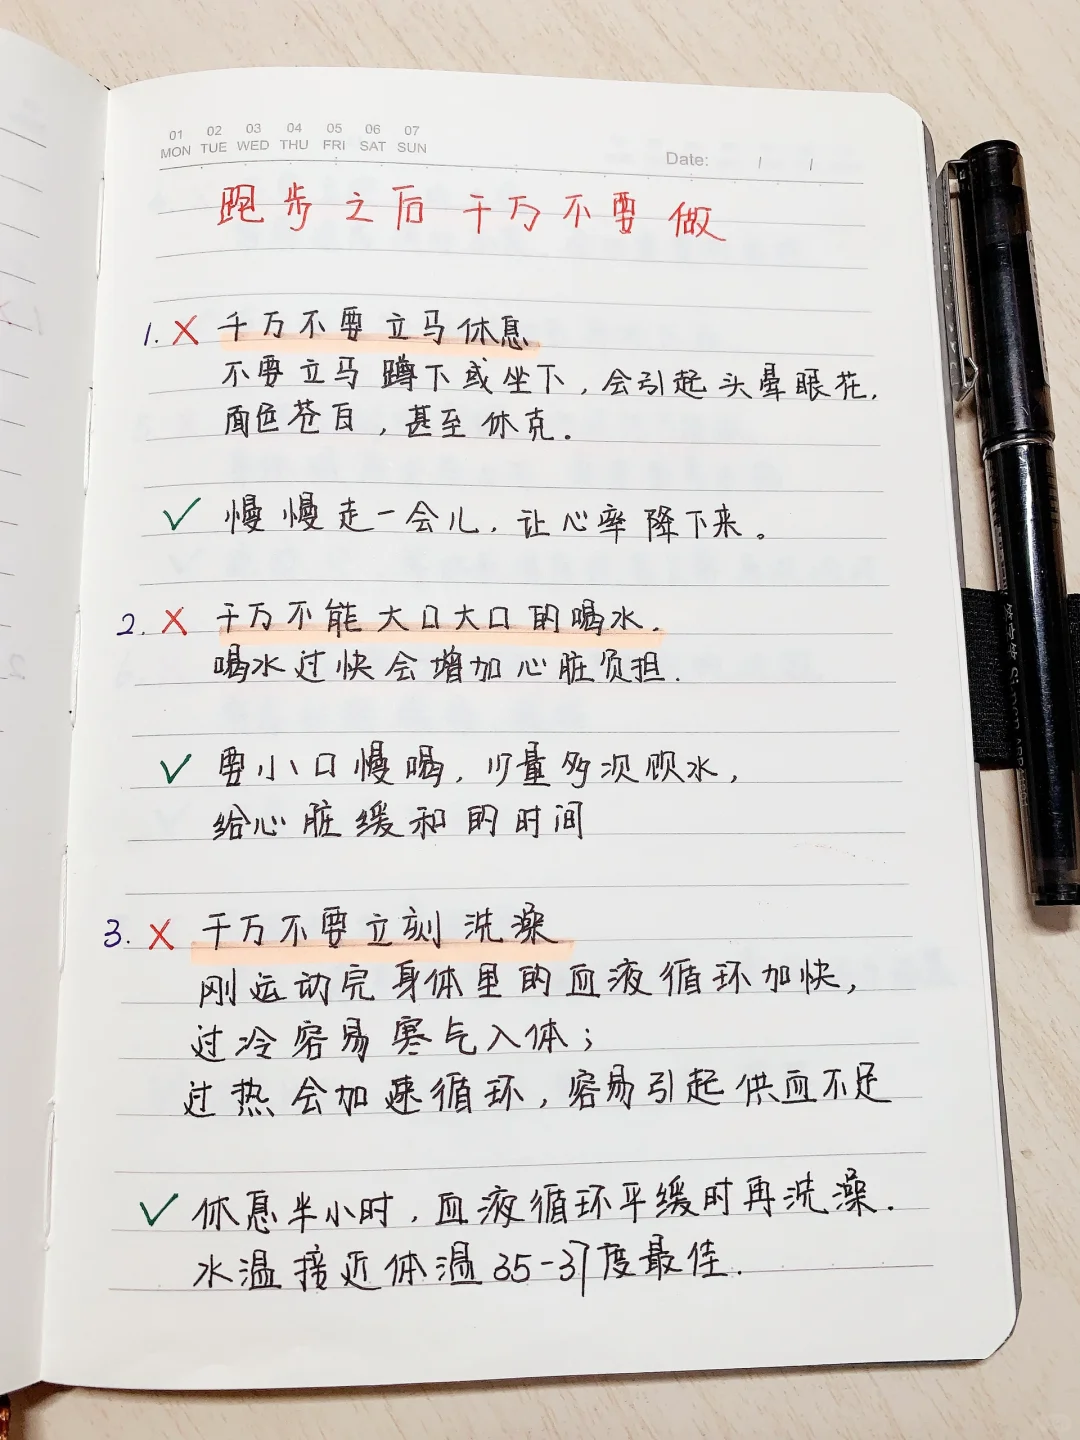 01 02 03 04 05 06 07
MON TUE WED THU FRI SAT SUN
Date: / /
跑步之后千万不要做
1. X 千万不要立马休息
不要立马蹲下或坐下，会引起头晕眼花，
面色苍白，甚至休克。
✓ 慢慢走一会儿，让心率降下来。
2. X 千万不能大口大口的喝水.
喝水过快会增加心脏负担.
✓ 要小口慢喝，少量多次顾水，
给心脏缓和的时间
3. X 千万不要立刻洗澡
刚运动完身体里的血液循环加快，
过冷容易寒气入体；
过热会加速循环，容易引起供血不足
✓ 休息半小时，血液循环平缓时再洗澡.
水温接近体温35-37度最佳.